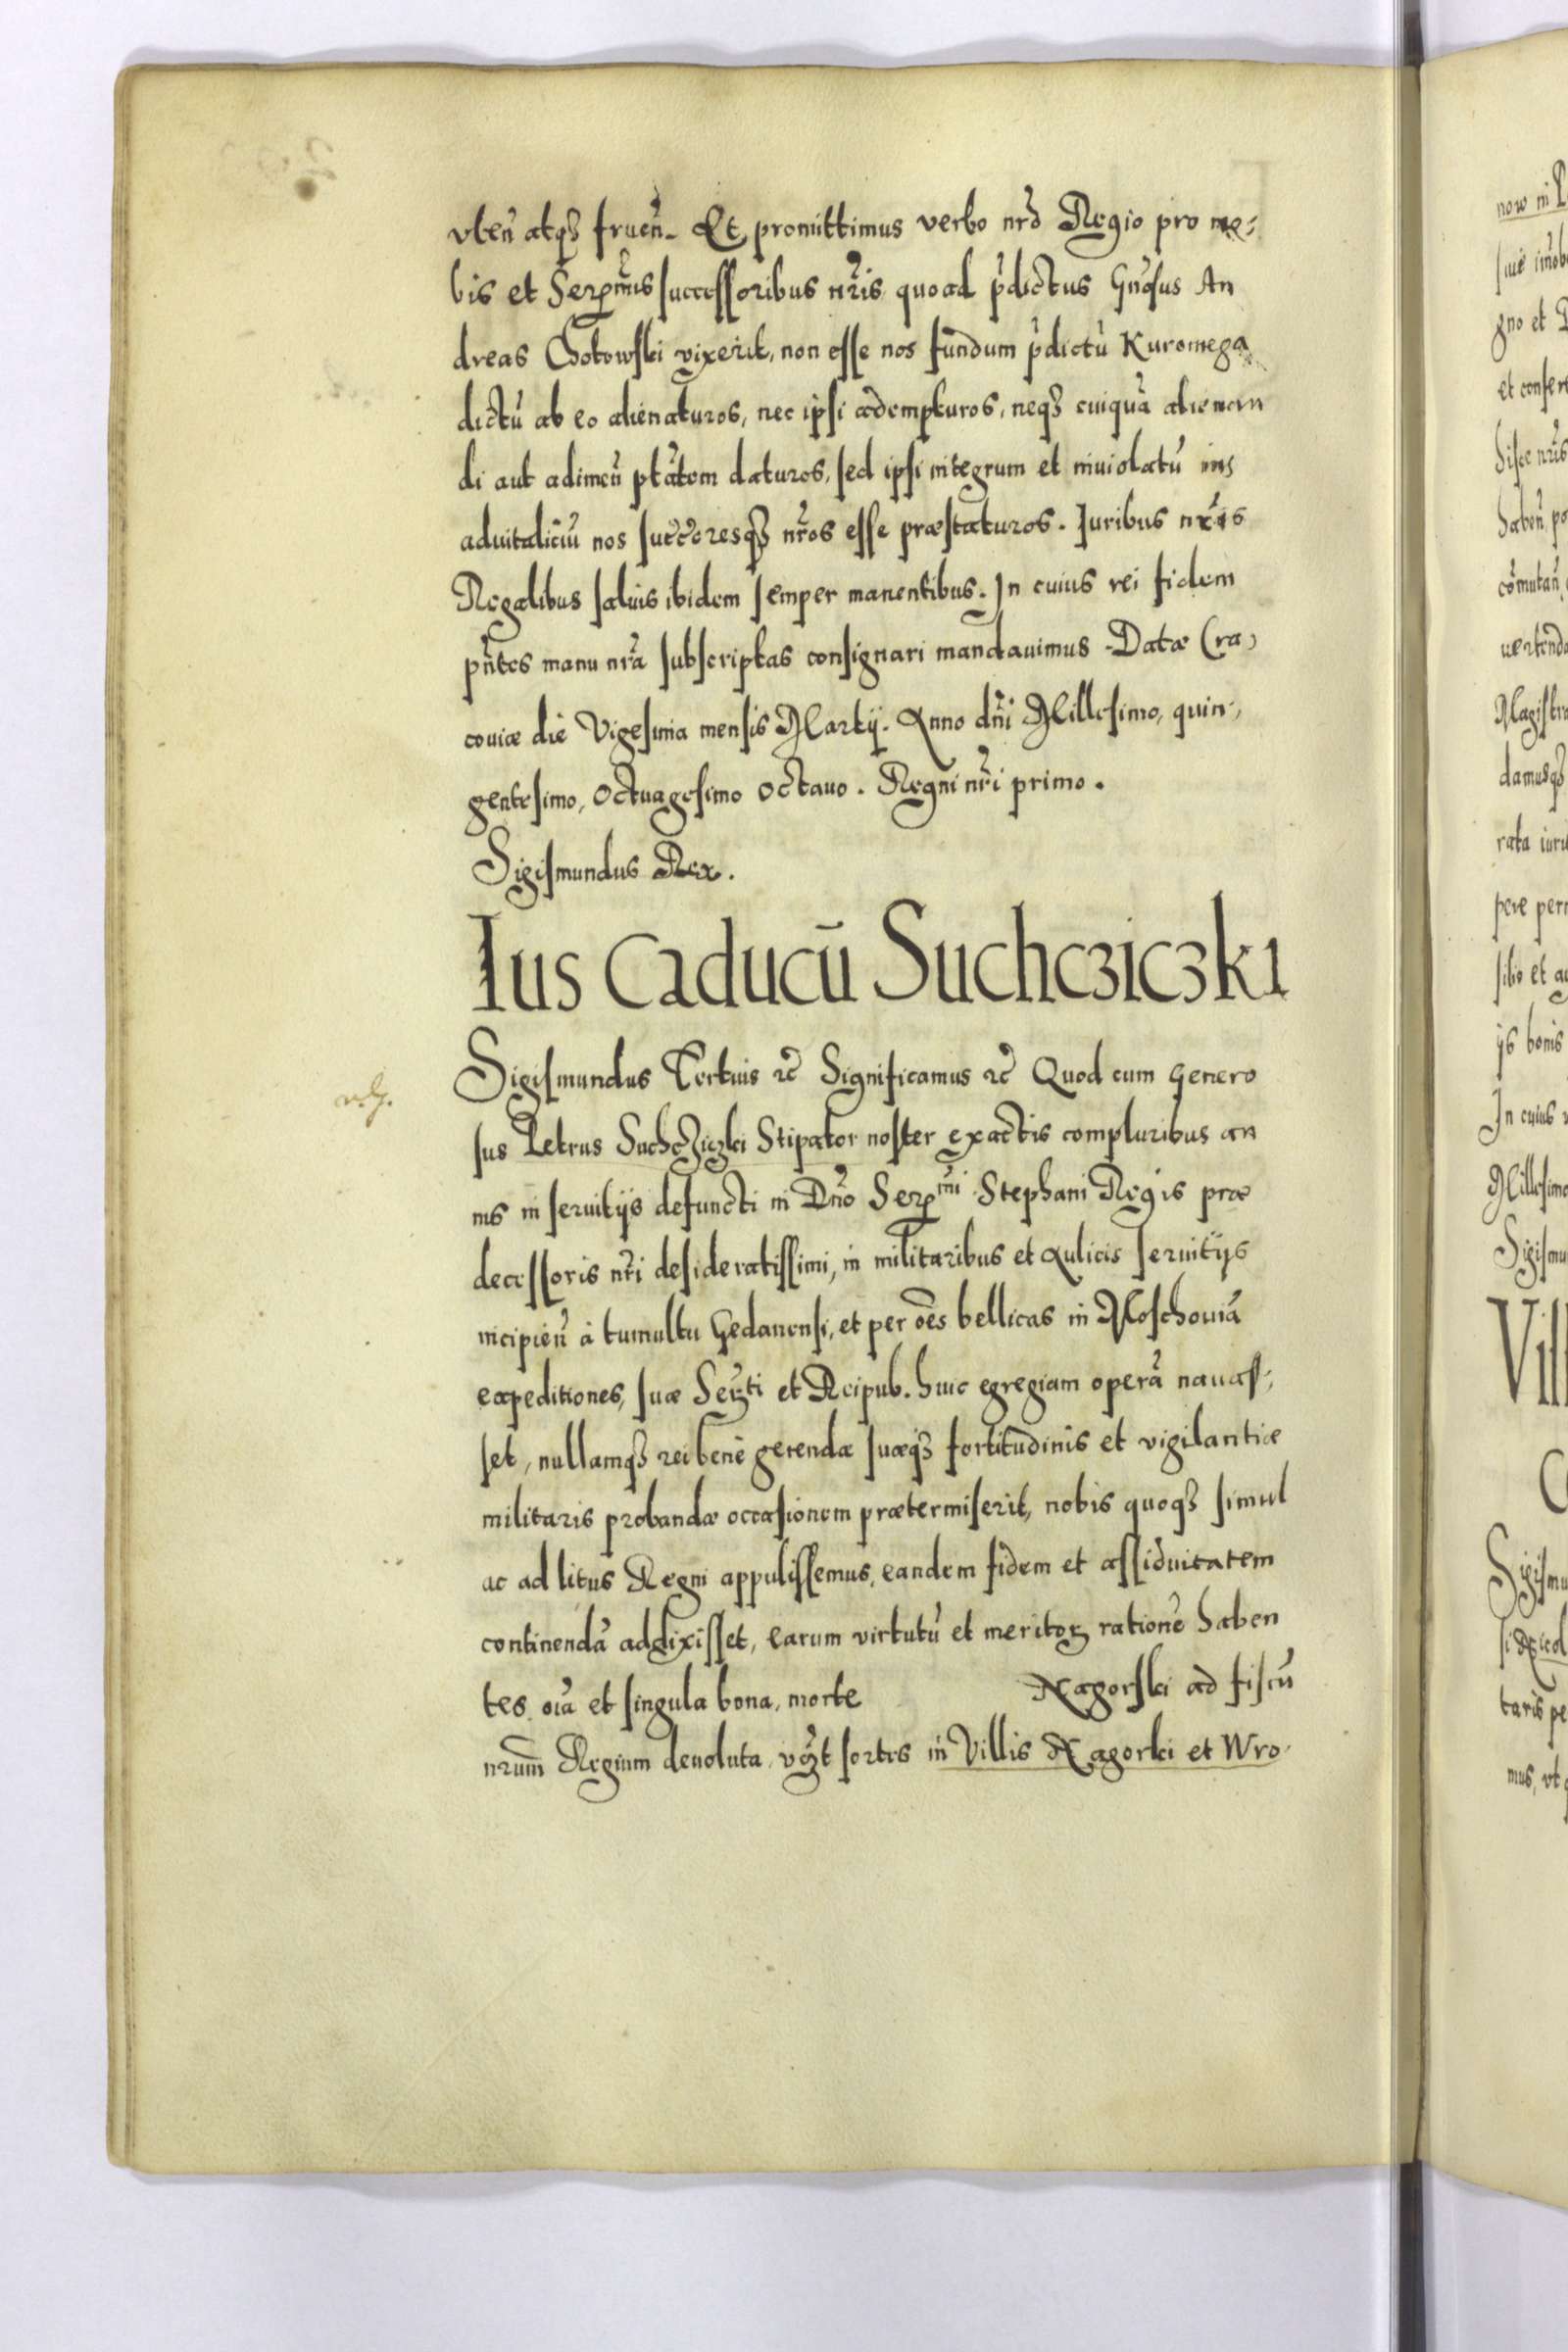 vten̄ atqȝ fruen̄. Et promittimus verbo nr̄o Regio pro no-
bis et Serp̄mis successoribus nr̄is quoad p̄dictus Gn̄osus An
dreas Chotowski vixerit, non esse nos fundum p̄dictū Kuromega
dictū ab eo alienaturos, nec ipsi adempturos, neqȝ cuiquā alienan
di aut adimen̄ ptātem daturos, sed ipsi integrum et inuiolatū ius
aduitaliciū nos succ̄oresqȝ nr̄os esse præstaturos. Iuribus nr̄is
Regalibus saluis ibidem semper manentibus. In cuius rei fidem
pn̄tes manu nr̄a subscriptas consignari mandauimus. Datæ Cra-
couiæ die Vigesima mensis Martij. Anno dn̄i Millesimo, quin-
gentesimo, Octuagesimo Octauo. Regni nr̄i primo.
Sigismundus Rex.
Ius Caducū Suchcziczki
Sigismundus Tertius etc̄ Significamus etc̄ Quod cum Genero
sus Petrus Suchcziczki Stipator noster exactis compluribus an
nis in seruitijs defuncti in Dn̄o Serp̄mi Stephani Regis præ
decessoris nr̄i desideratissimi, in militaribus et Aulicis seruitijs
incipien̄ à tumultu Gedanensi, et per oēs bellicas in Moschouiā
expeditiones, suæ Serti et Reipub. huic egregiam operā nauas-
set, nullamqȝ rei benè gerendæ suæqȝ fortitudinis et vigilantiæ
militaris probandæ occasionem prætermiserit, nobis quoqȝ simul
ac ad litus Regni appulissemus, eandem fidem et assiduitatem
continendā addixisset, earum virtutū et meritoꝝ rationē haben
tes. oīa et singula bona, morte Nagorski ad fiscū
nrum̄ Regium deuoluta, vꝫt sortes in Villis Nagorki et Wro-